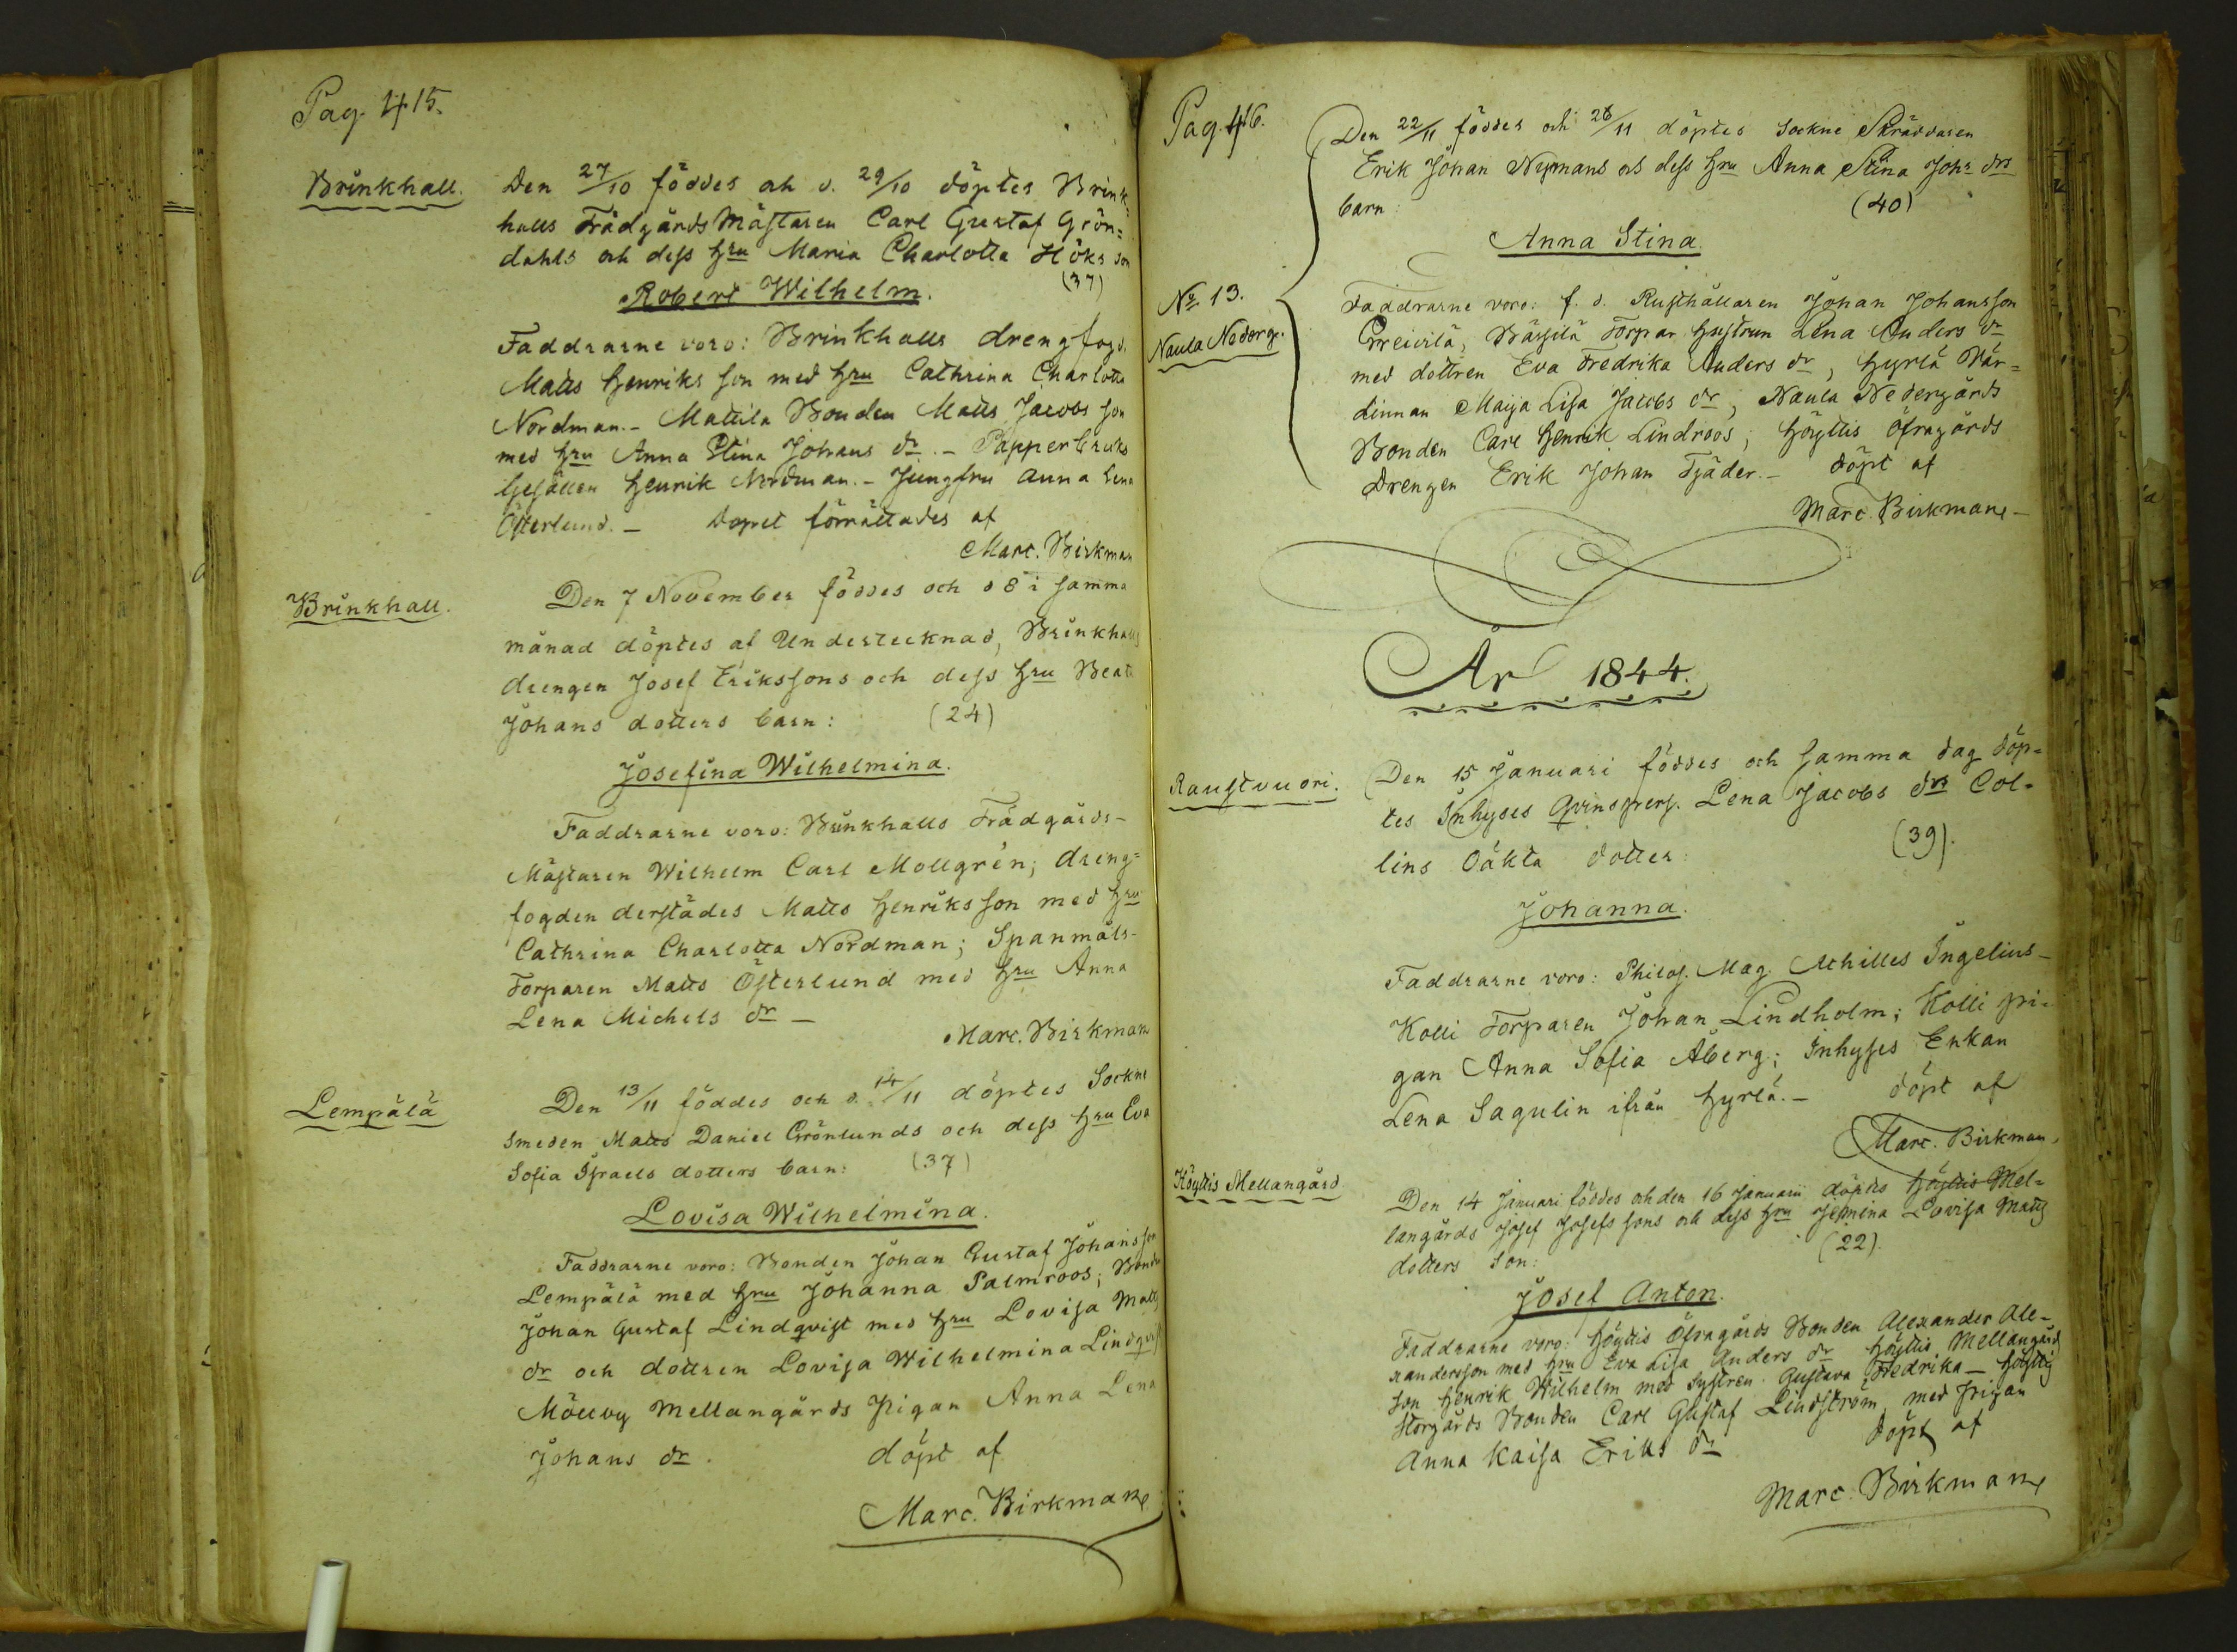 Pag. 415.
Brinkhall.
Den 27/10 föddes och d. 29/10 döptes Brink=
halls Trädgårds Mästaren Carl Gustaf Grön=
dahls och dess Hru Maria Charlotta Höks son
(37)
Robert Wilhelm.
Faddrarne voro: Brinkhalls drengfogd.
Matts Henriks son med Hru Cathrina Charlotta
Nordman. - Mattila Bonden Matts Jacobs son
med Hru Anna Stina Johans dr. - Papperbruks
Gesällen Henrik Nordman. - Jungfru Anna Lena
Österlund. - Dopet förrättades af
Marc. Birkman
Brinkhall.
Den 7 November föddes och d 8 i samma
månad döptes af Undertecknad, Brinkhalls
drengen Josef Erikssons och dess Hru Beata
Johans dotters barn: (24)
Josefina Wilhelmina.
Faddrarne voro: Brinkhalls Trädgårds-
Mästaren Wilhelm Carl Mollgrén; dreng=
fogden derstädes Matts Henriksson med Hru
Cathrina Charlotta Nordman; Spanmåls-
Torparen Matts Österlund med Hru Anna
Lena Michels dr -
Marc. Birkman
Lempälä
Den 13/11 föddes och d. 14/11 döptes Sockne
Smeden Matts Daniel Grönlunds och dess Hru Eva
Sofia Israels dotters barn: (37)
Lovisa Wilhelmina.
Faddrarne voro: Bonden Johan Gustaf Johansson
Lempälä med Hru Johanna Palmroos; Bonden
Johan Gustaf Lindqvist med Hru Lovisa Matts
dr och dottren Lovisa Wilhelmina Lindqvist
Möuvy Mellangårds Pigan Anna Lena
Johans dr. döpt af
Marc. Birkman
Pag. 416.
Den 22/11 föddes och 26/11 döptes Sockne Skräddaren
Erik Johan Nymans och dess Hru Anna Stina Johs drs
barn: (40)
Anna Stina.
No 13.
Naula Nederg.
Faddrarne voro: f. d. Rusthållaren Johan Johansson
Preivilä, Torpar hustrun Lena Anders dr
med dottren Eva Fredrika Anders dr, Hyrlä Vär=
dinnan Maija Lisa Jacobs dr, Naula Nedergårds
Bonden Carl Henrik Lindroos, Höyttis Öfragårds
Drengen Erik Johan Fjäder. - döpt af
Marc. Birkman -
År 1844.
Raustvuori.
Den 15 Januari föddes och samma dag döp=
tes Inhyses Qvinspers. Lena Jacobs drs Col=
lins Oäkta dotter: (39).
Johanna.
Faddrarne voro: Philos. Mag. Achilles Ingelius -
Kolli Torparen Johan Lindholm; Kolli pi=
gan Anna Sofia Åberg; Inhyses Enkan
Lena Sagulin ifrån Hyrlä. - döpt af
Marc. Birkman,
Höyttis Mellangård.
Den 14 Januari föddes och den 16 Januarii döptes Höyttis Mel=
langårds Josef Josefs sons och dess Hru Jemina Lovisa Matts
dotters son: (22).
Josef Anton.
Faddrarne voro: Höyttis Öfragårds Bonden Alexander Ale-
xandersson med Hru Eva Lisa Anders dr Höyttis Mellangårds
son Henrik Wilhelm med systren Gustava Fredrika - Höyttis
Storgårds Bonden Carl Gustaf Lindström med pigan
Anna Kaisa Eriks dr döpt af
Marc. Birkman